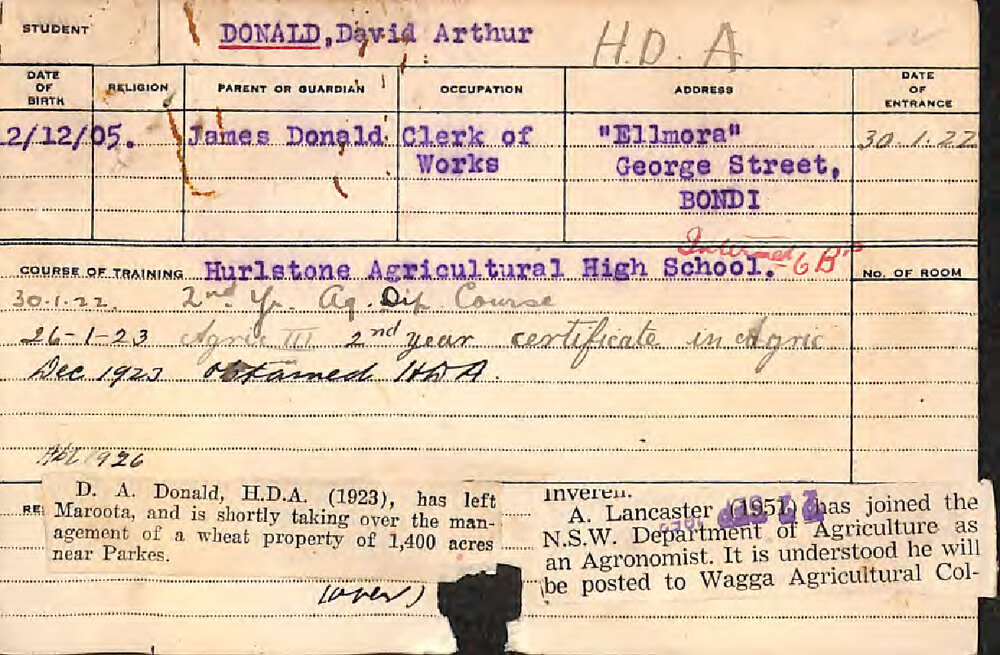 STUDENT
DONALD, David Arthur
H.D.A
DATE OF BIRTH
RELIGION
PARENT OR GUARDIAN
OCCUPATION
ADDRESS
DATE OF ENTRANCE
2/12/05.
James Donald
Clerk of
Works
"Ellmora"
George Street,
BONDI
30.1.22
COURSE OF TRAINING
Hurlstone Agricultural High School.
6B
No. OF ROOM
30.1.22. 2nd Yr Ag. Dip Course
26-1-23 Agric III 2nd year certificate in Agric
Dec 1923 Obtained HDA.
1926
RE
D. A. Donald, H.D.A. (1923), has left
Maroota, and is shortly taking over the man-
agement of a wheat property of 1,400 acres
near Parkes.
Inverell.
A. Lancaster (1951) has joined the
N.S.W. Department of Agriculture as
an Agronomist. It is understood he will
be posted to Wagga Agricultural Col-
(over)